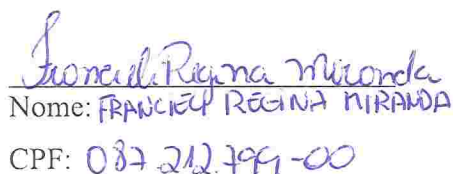 Franciely Regina Miranda
Nome: FRANCIELY REGINA MIRANDA
CPF: 087.212.799-00